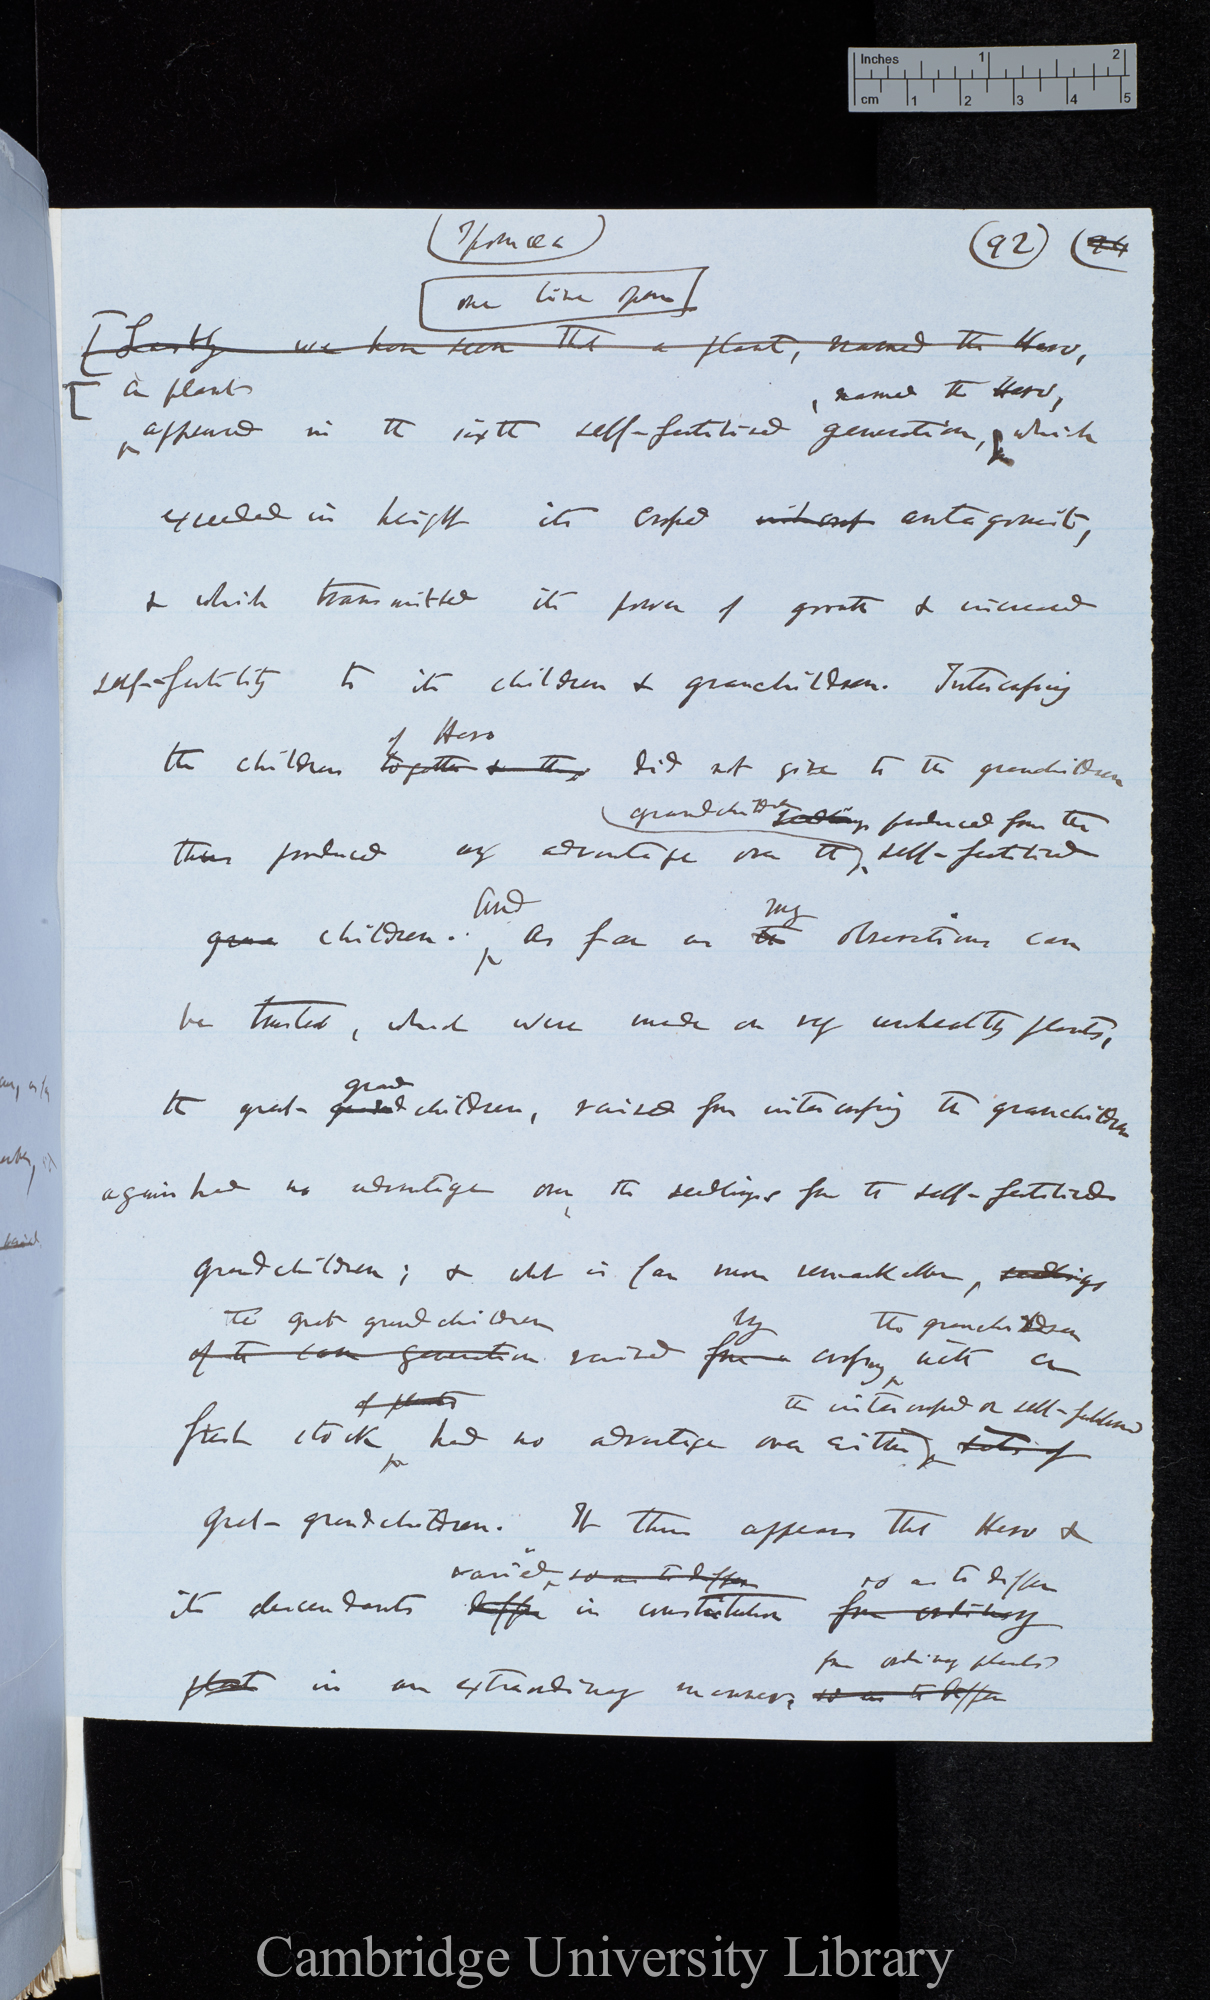 Inches 1 2
cm 1 2 3 4 5
(Ipomœa) (92) (94
one line open
[Lastly we have seen that a plant, named the Hero,
[ a plant , named the Hero,
appeared in the sixth self-fertilised generation, which
exceeded in height its crossed antagonist,
& which transmitted its power of growth & increased
self-fertility to its children & grandchildren. Intercrossing
of Hero
the children together did not give to the grandchildren
grandchildren seedlings produced from the
thus produced any advantage over the self-fertilised
and my
grand children. As far as the observations can
be trusted, which were made on very unhealthy plants,
grand
the great-grand children, raised from intercrossing the grandchildren
again had no advantage over the seedlings from the self-fertilised
grandchildren; & what is far more remarkable, seedlings
the great grandchildren by the grandchildren
of the same generation raised from a crossing with a
of plants the intercrossed or self-fertilised
fresh stock had no advantage over either sets of
great-grandchildren. It thus appears that Hero &
varied so as to differ so as to differ
its descendants differ in constitution from ordinary
from ordinary plants
plants in an extraordinary manner, so as to differ
Cambridge University Library